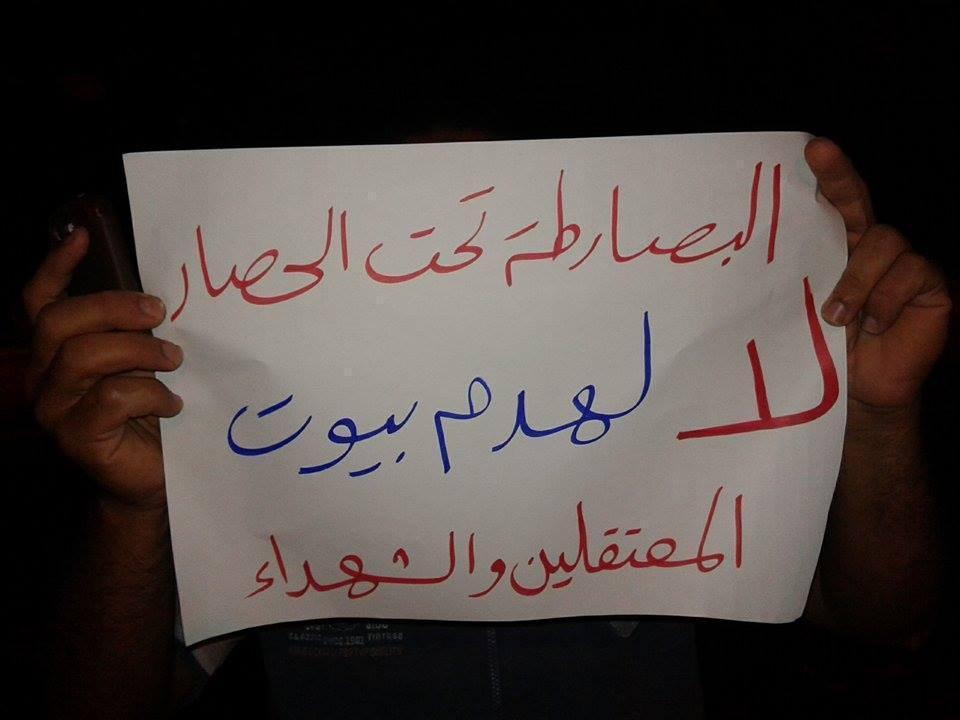 البصارطة تحت الحصار
لا لهدم بيوت
المعتقلين والشهداء